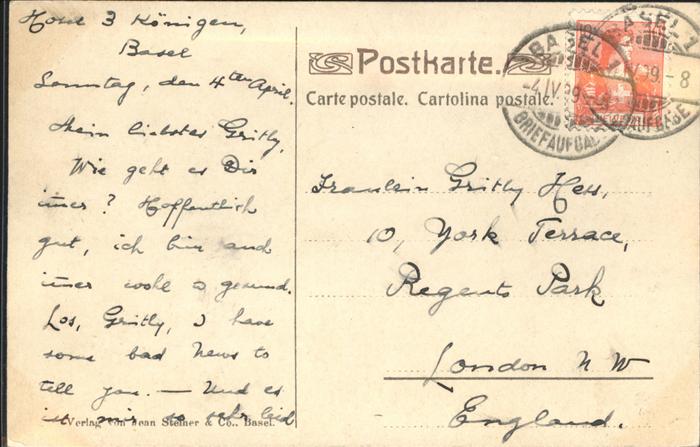 Hotel 3 Königen,
Basel
Sonntag, den 4ten April.
Mein liebstes Gritly,
Wie geht es Dir
imer? Hoffentlich
gut, ich bin auch
imer wohl & gesund.
Los, Gritly, I have
some bad News to
tell you. — Und es
ist mir so sehr leid
Verlag von Jean Steiner & Co., Basel.
Postkarte.
Carte postale. Cartolina postale.
BASEL 1
-4.IV.09.-8
BRIEFAUFGABE
BASEL 1
IV.09.-8
BRIEFAUFGABE
HELVETIA
Fraulein Gritly Hess,
10, York Terrace,
Regents Park
London N W
England.